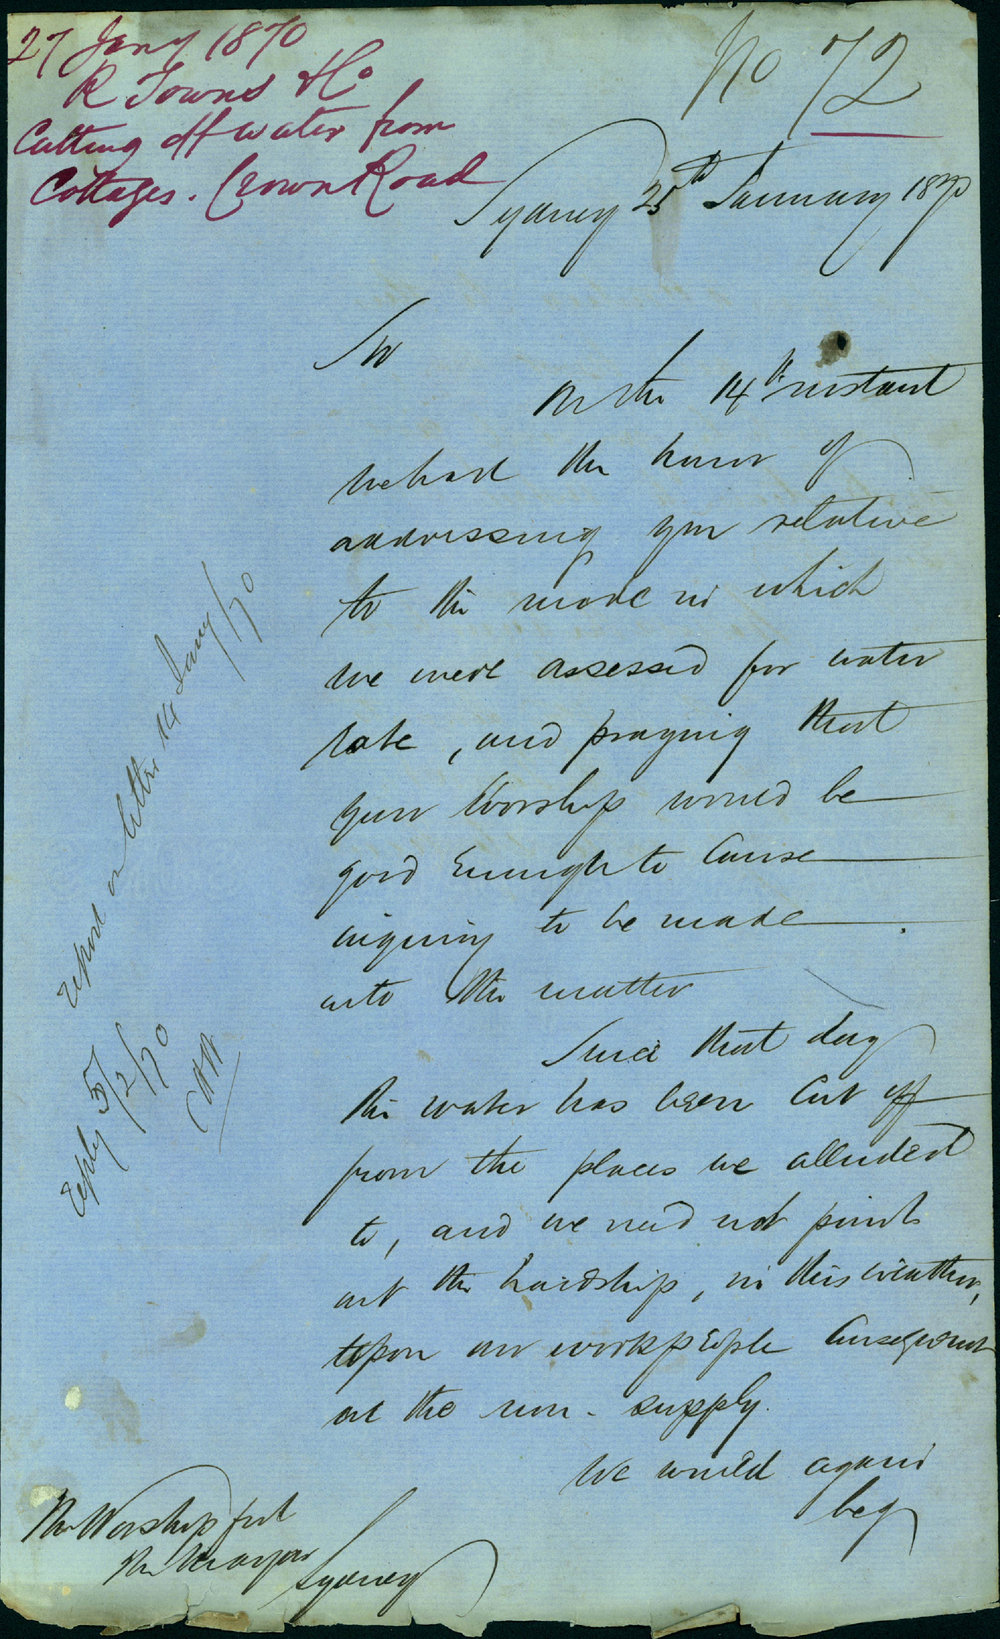 27 Jany 1870
R Towns & Co
Cutting off water from
Cottages. Crown Road
No 72
Sydney 25th January 1870
Sir
On the 14th instant
we had the honor of
addressing you relative
to the mode in which
we were assessed for water
rate, and praying that
your Worship would be
good enough to cause
inquiry to be made
into the matter
Since that day
the water has been cut off
from the places we alluded
to, and we need not point
out the hardship, in this weather,
upon our workpeople consequent
on the non-supply.
We would again
beg
The Worshipful
The Mayor
Sydney
report on letter 14 Jany/70
reply 5/2/70